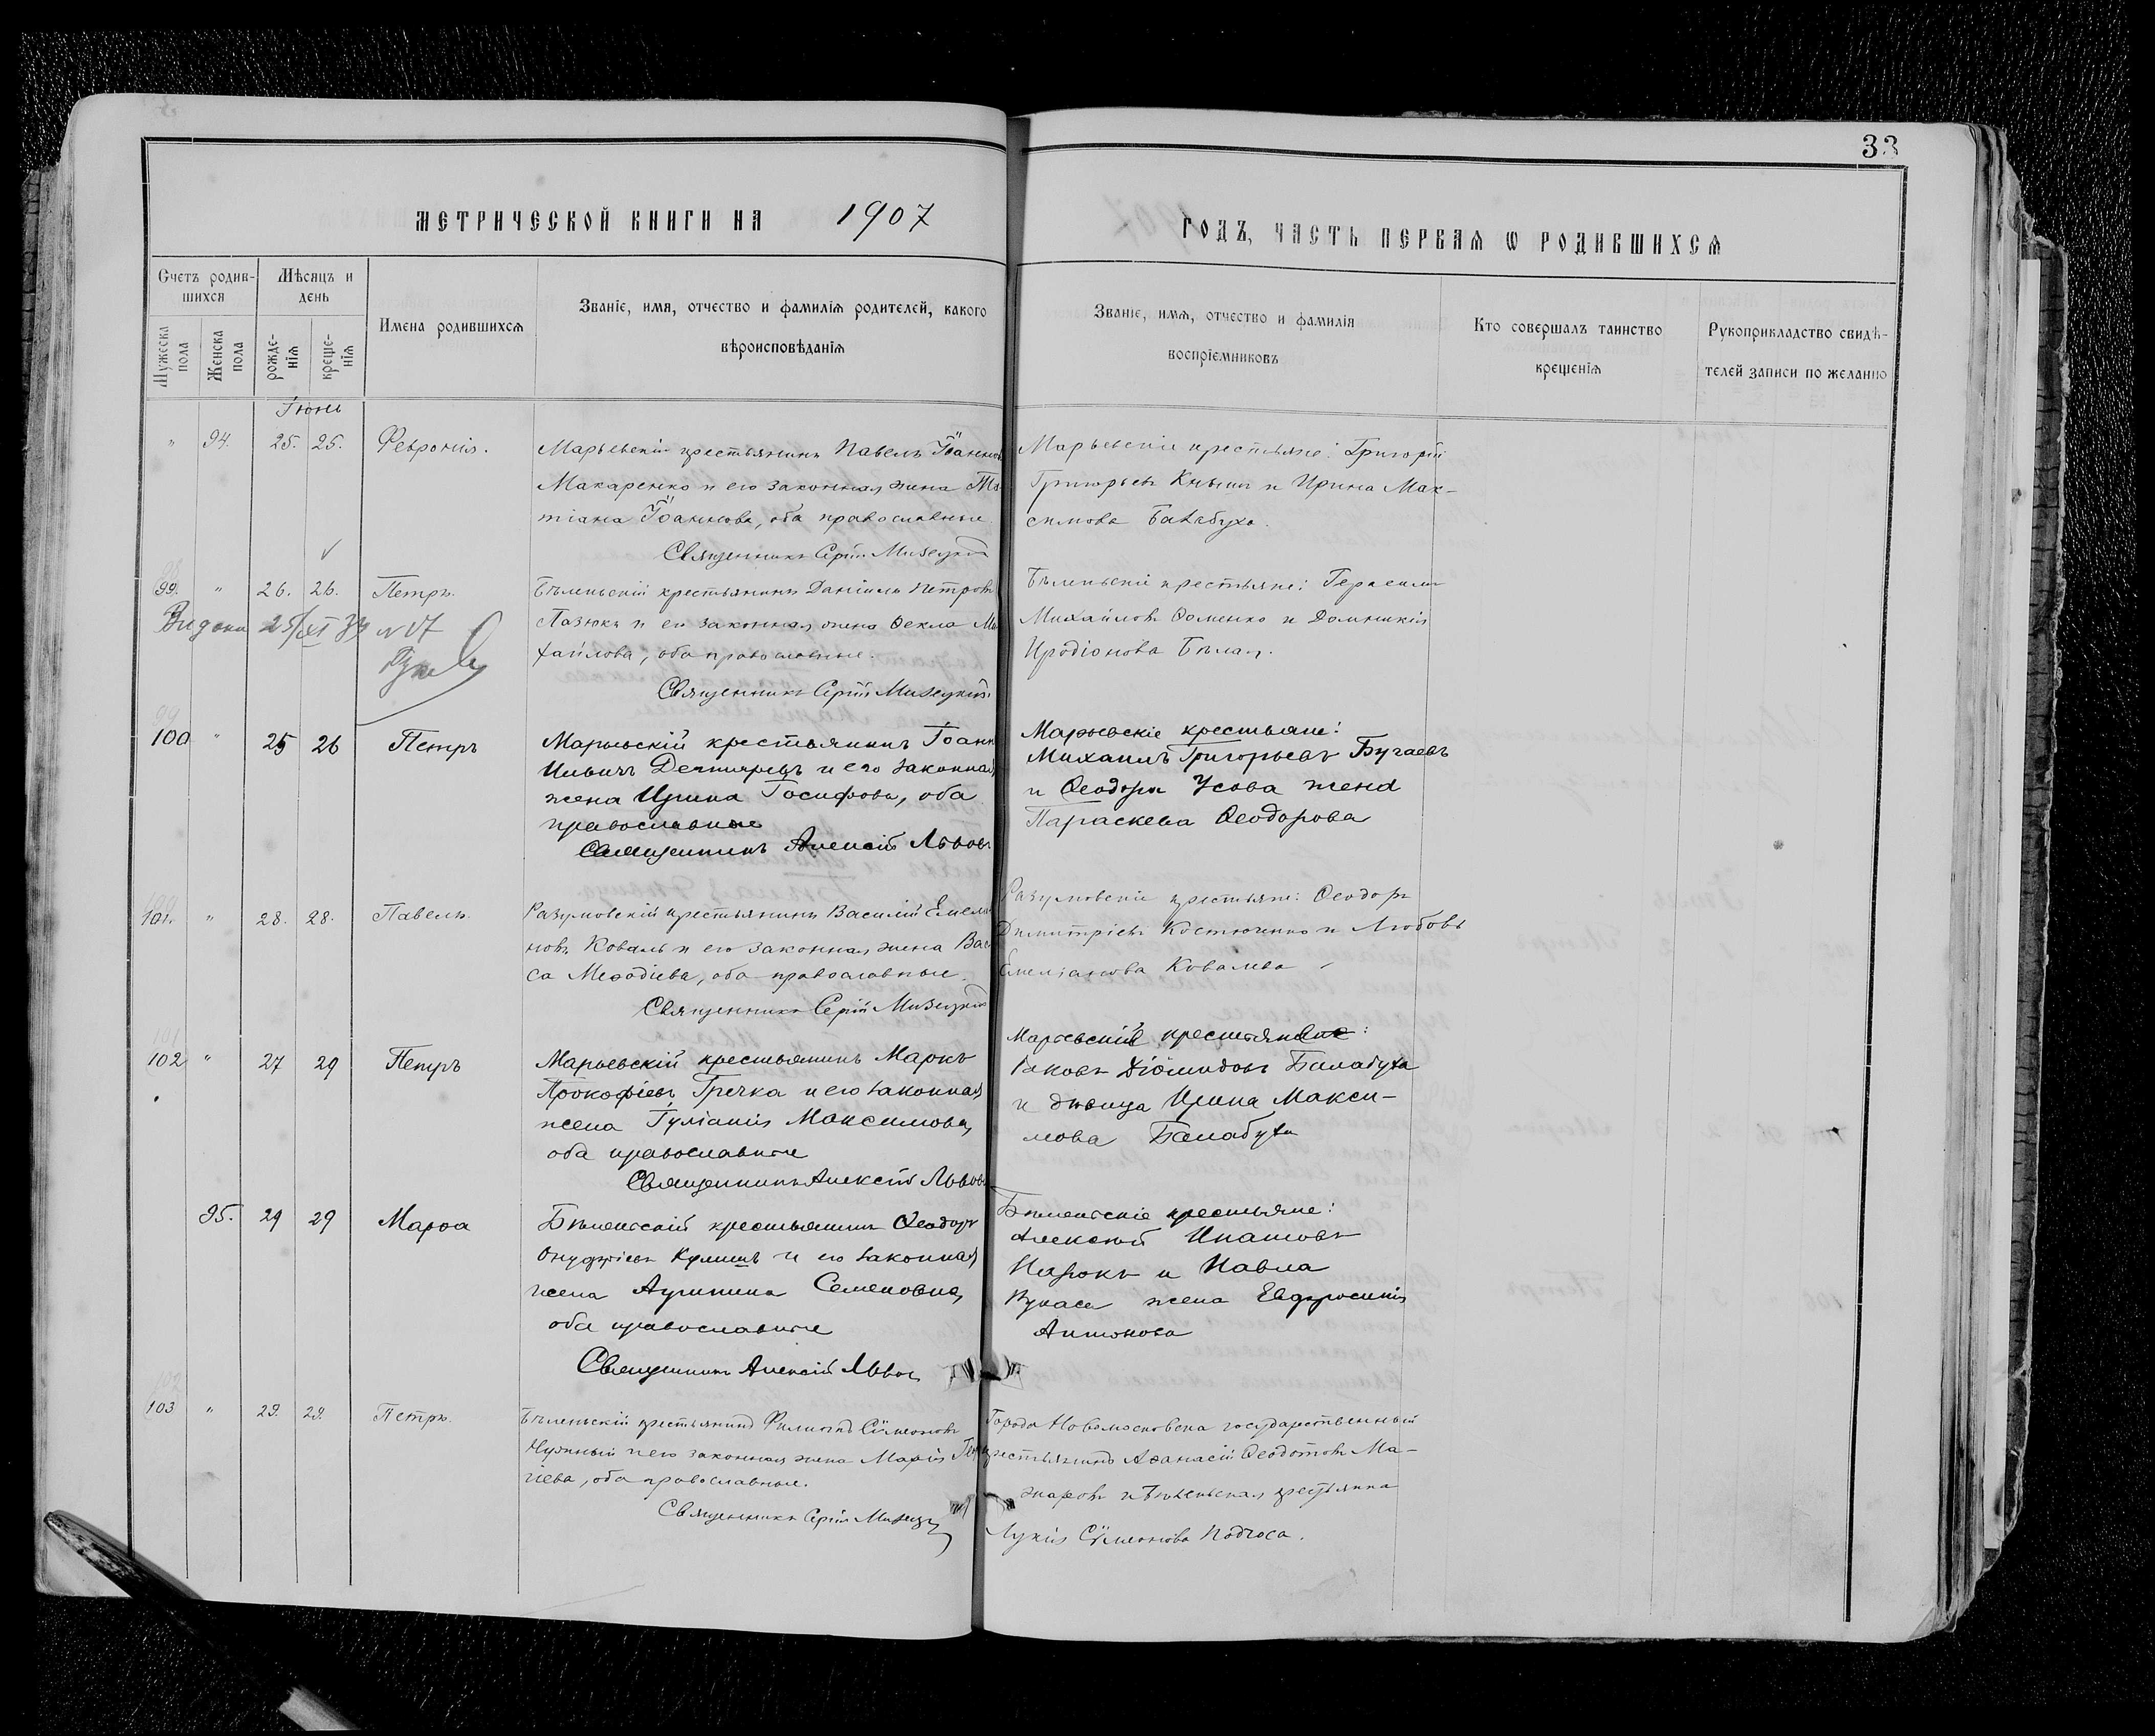 33
МЕТРИЧЕСКОЙ КНИГИ НА 1907
ГОДЪ, ЧАСТЬ ПЕРВАЯ Ѡ РОДИВШИХСЯ
Счетъ родив-
шихся
Мѣсяцъ и
день
Мужеска
пола
Женска
пола
рожде-
нія
креще-
нія
Имена родившихся
Званіе, имя, отчество и фамилія родителей, какого
вѣроисповѣданія
Званіе, имя, отчество и фамилія
воспріемниковъ
Кто совершалъ таинство
крещенія
Рукоприкладство свидѣ-
телей записи по желанію
Іюнь
" 94. 25. 25. Февронія.
Марьевскій крестьянинъ Павелъ Іоанновъ
Макаренко и его законная жена Та-
тіана Іоаннова, оба православные
Священникъ Сергій Мизецкій
Марьевскіе крестьяне: Григорій
Григорьевъ Кнышъ и Ирина Мак-
симова Балабуха.
99. " 26. 26. Петръ.
Бѣленьскій крестьянинъ Даніилъ Петровъ
Лазюкъ и его законная жена Ѳекла Ми-
хайлова, оба православные.
Священникъ Сергій Мизецкій.
Бѣленьскіе крестьяне: Герасимъ
Михайловъ Ѳоменко и Домникія
Иродіонова Бѣлая.
100 " 25 26 Петръ
Марьевскій крестьянинъ Іоаннъ
Ильичъ Дегтяревъ и его законная
жена Ирина Іосифова, оба
православные
Священникъ Алексій Львовъ
Марьевскіе крестьяне:
Михаилъ Григорьевъ Бугаевъ
и Ѳеодора Усова жена
Параскева Ѳеодорова
101. " 28. 28. Павелъ.
Разумовскій крестьянинъ Василій Емелья-
новъ Коваль и его законная жена Вас-
са Меѳодіева, оба православные.
Священникъ Сергій Мизецкій
Разумовскіе крестьяне: Ѳеодоръ
Димитріевъ Костюченко и Любовь
Емеліанова Ковалева
102 " 27 29 Петръ
Марьевскій крестьянинъ Маркъ
Прокофіевъ Гречка и его законная
жена Іуліанія Максимова,
оба православные
Священникъ Алексій Львовъ
Марьевскій крестьянинъ:
Іаковъ Діомидовъ Балабуха
и дѣвица Ирина Макси-
мова Балабуха
95. 29 29 Марѳа
Бѣленьскій крестьянинъ Ѳеодоръ
Онуфріевъ и его законная
жена Агрипина Семеновна,
оба православные
Священникъ Алексій Львовъ
Бѣленьскіе крестьяне:
Алексѣй Игнатовъ
и Павла
жена Евфросинія
Антонова
103 " 29. 29. Петръ.
Бѣленьскій крестьянинъ Филиппъ Сѵмеоновъ
и его законная жена Марія
гіева, оба православные.
Священникъ Сергій Мизецкій
Города Новомосковска государственный
крестьянинъ Аѳанасій Ѳеодотовъ Ма-
каровъ и Бѣленьская крестьянка
Лукія Сѵмеонова